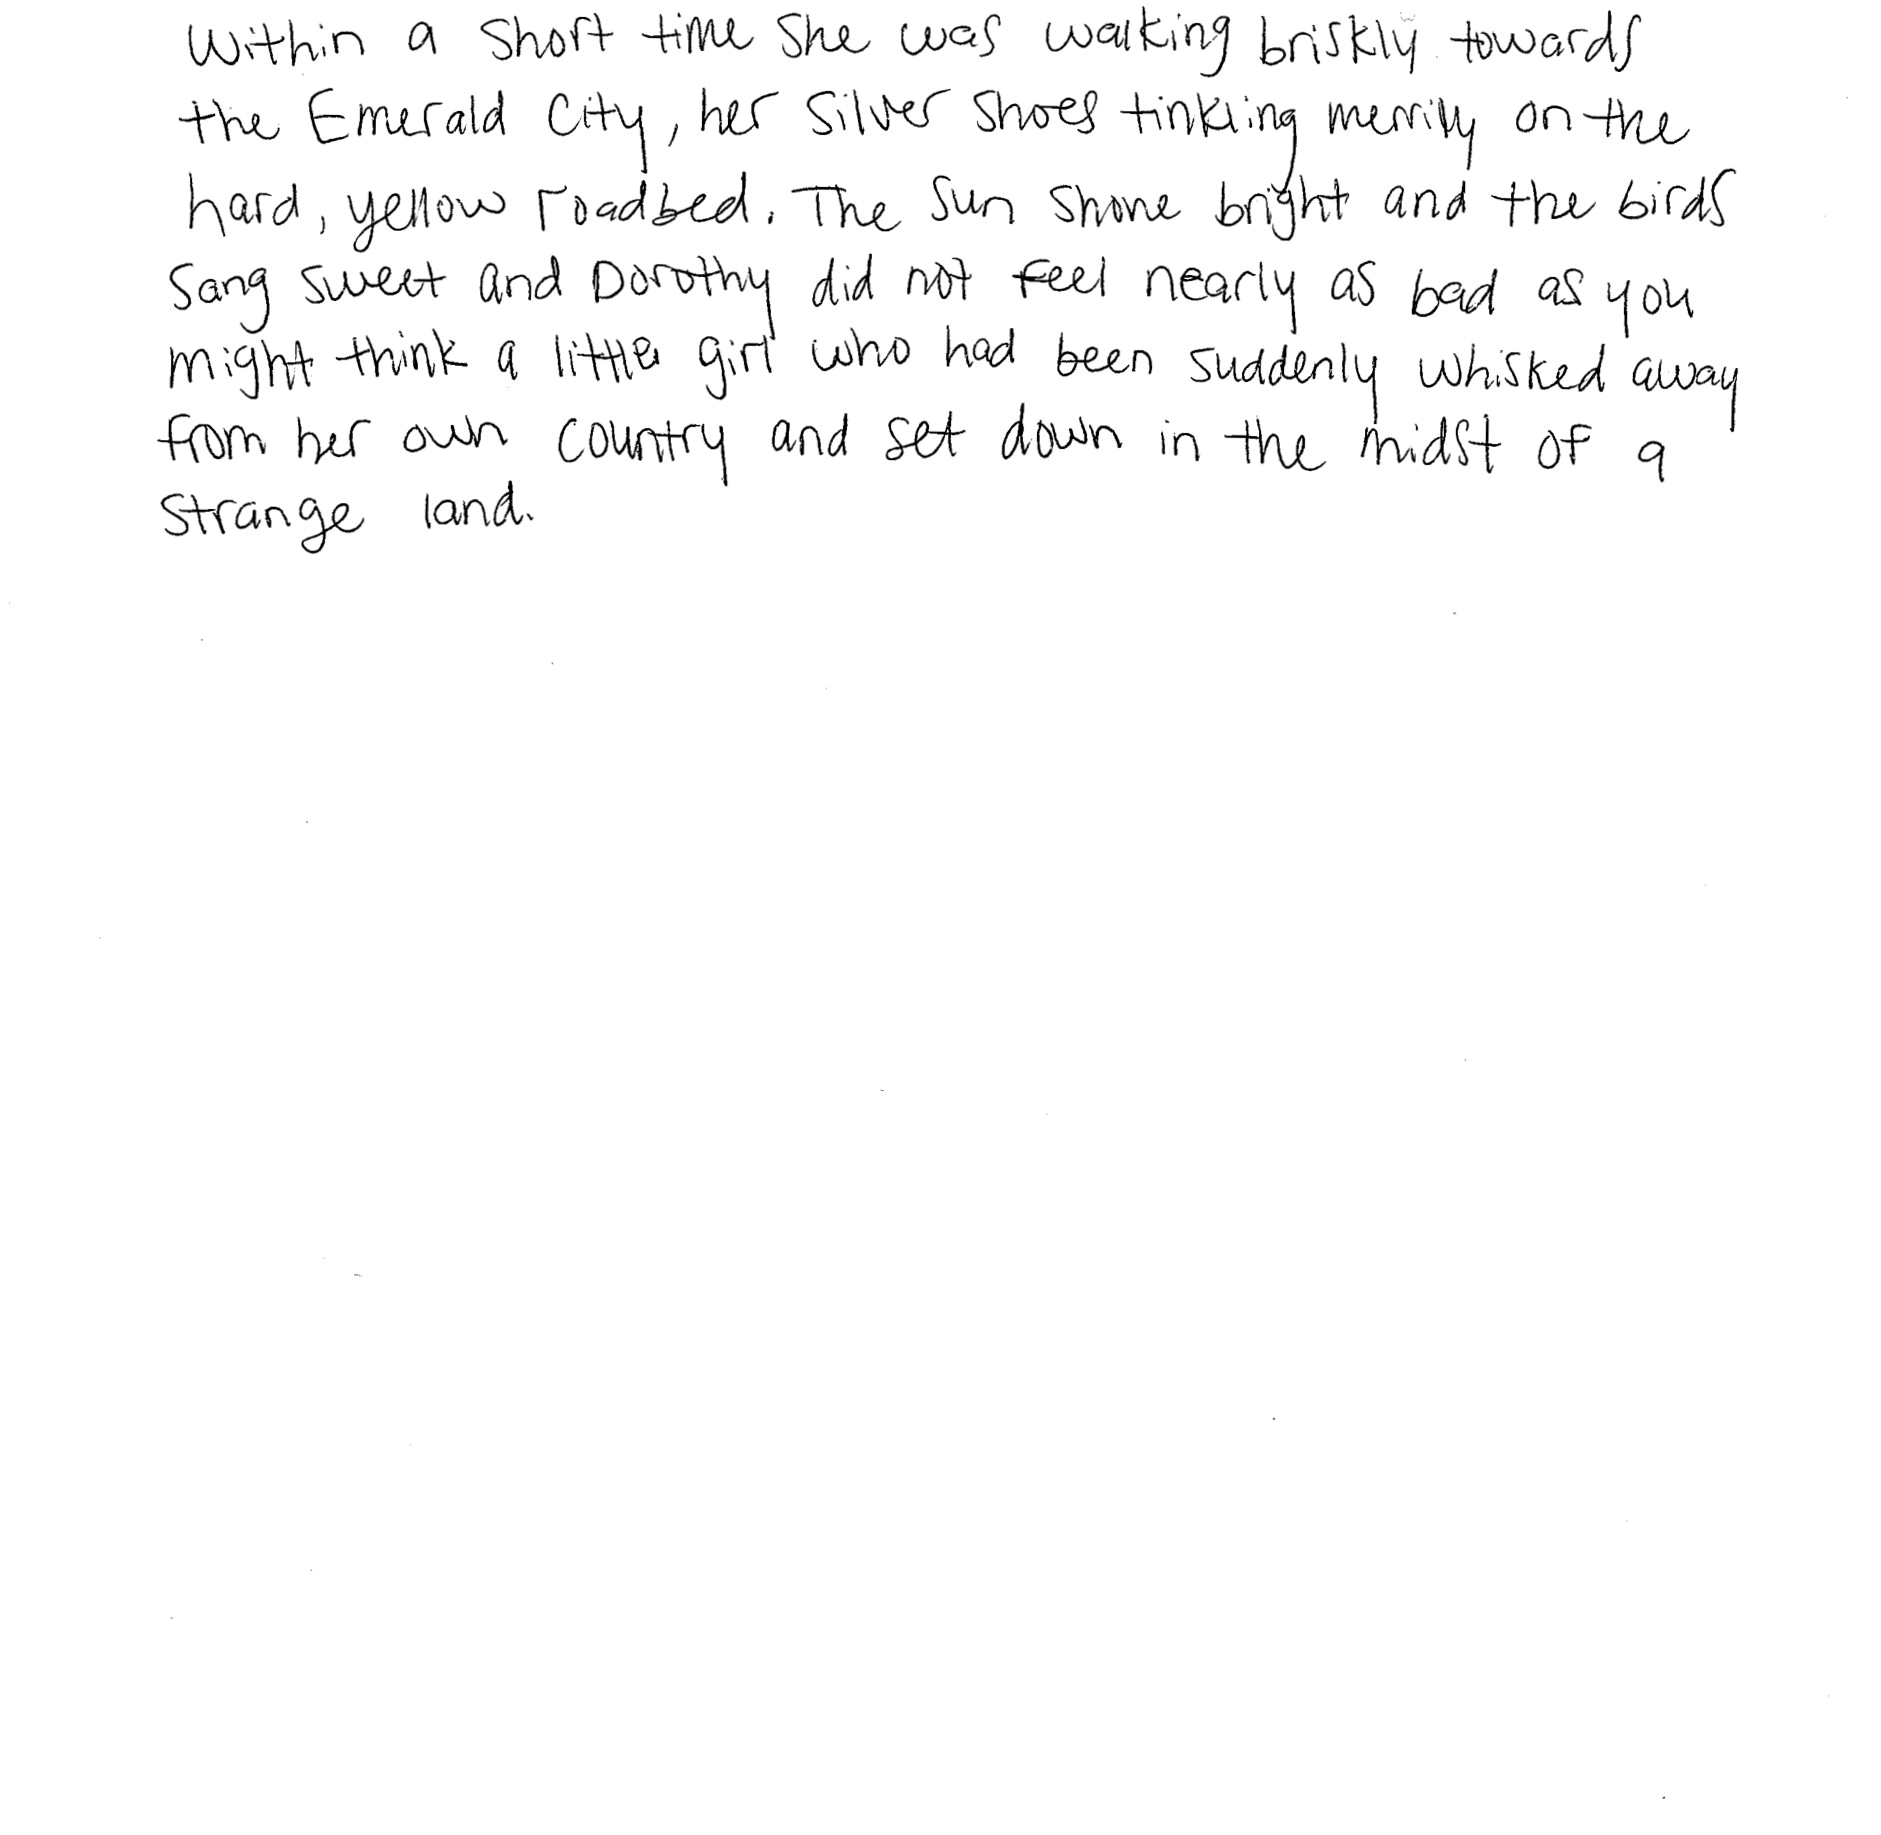 Within a short time she was walking briskly towards
the Emerald City, her Silver Shoes tinkling merrily on the
hard, yellow roadbed. The sun shone bright and the birds
sang sweet and Dorothy did not feel nearly as bad as you
might think a little girl who had been suddenly whisked away
from her own country and set down in the midst of a
strange land.